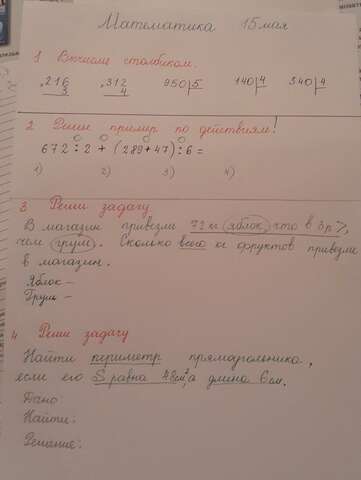 Математика 15 мая
1 Вычисли столбиком.
× 216 × 312 950 5 140 4 340 4
3 4
2 Реши пример по действиям!
672 : 2 + (289 + 47) : 6 =
1) 2) 3) 4)
3 Реши задачу
В магазин привезли 72 кг яблок что в 3р >,
чем груш. Сколько всего кг фруктов привезли
в магазин.
Яблок –
Груш –
4 Реши задачу
Найти периметр прямоугольника,
если его S равна 48см², а длина 6см.
Дано
Найти:
Решение: